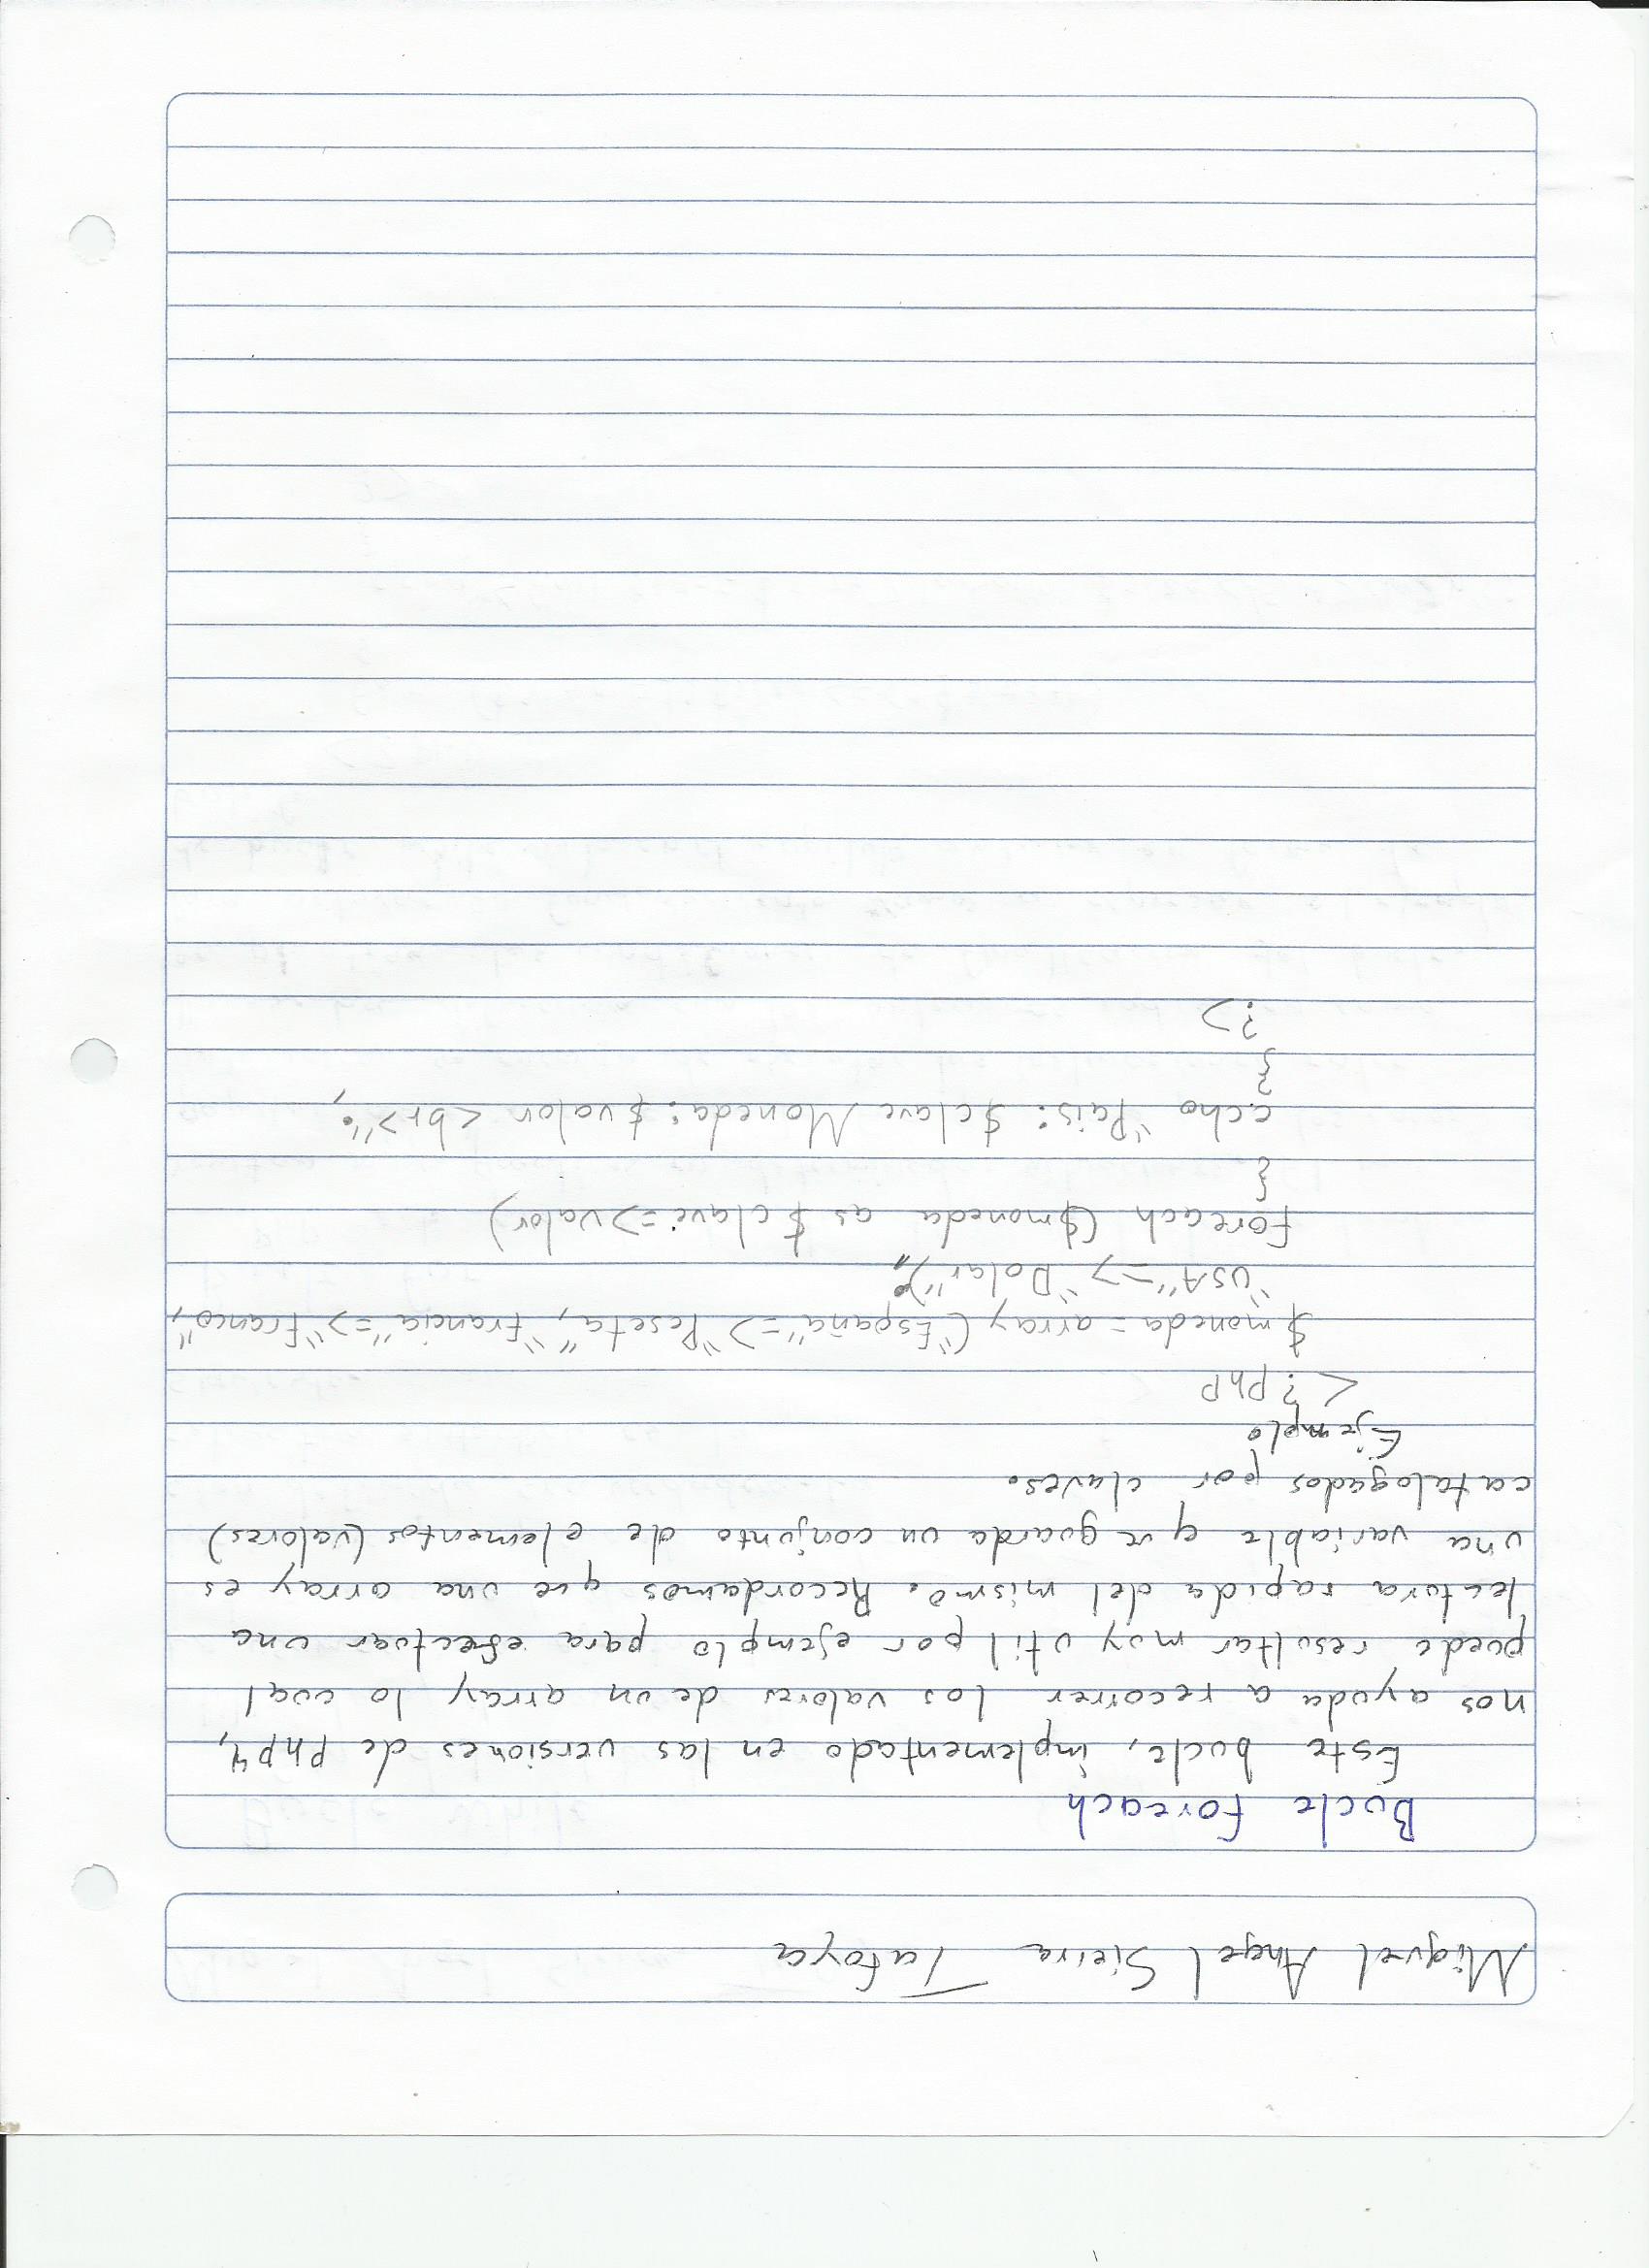 Miguel Angel Sierra Tafoya
Bucle foreach
Este bucle, implementado en las versiones de Php4,
nos ayuda a recorrer los valores de un array lo cual
puede resultar muy util por ejemplo para efectuar una
lectura rapida del mismo. Recordamos que una array es
una variable que guarda un conjunto de elementos (valores)
catalogados por claves.
Ejemplo
<?php
$moneda=array("España"=>"Peseta","Francia"=>"Franco",
"USA"=>"Dolar");
foreach ($moneda as $clave=>valor)
{
echo "Pais: $clave Moneda: $valor <br>";
}
?>